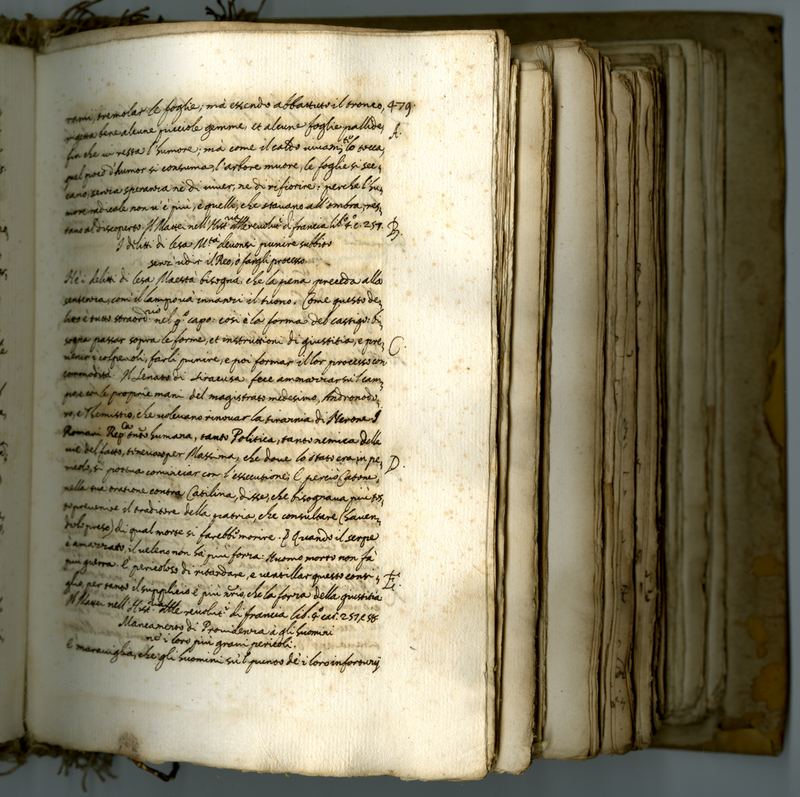 rami, tremolar le foglie; mà essendo abbattuto il tronco, 479.
alcune picciole gemme, et alcune foglie pallide, A.
fin che vi resta l'humore; ma come il caldo lo tocca,
quel poco d'humor si consuma, l'arbore muore, le foglie si sec=
cano, senza speranza nè di viver, ne di rifiorire; perche l'hu=
more radicale non v'è più, e quelle, che stavano all'ombra, res=
tano al discoperto. Il Mattei nell'Hist. delle revolut. di francia lib. 4. c. 257. B.
I delitti di lesa M.tà devonsi punire subbito
senz'udir il Reo, ò fargli processo.
Nè i delitti di lesa Maestà bisogna, che la pena preceda alla
sentenza, com'il lampo và innanzi il tuono. Come questo de=
litto è tutto straord.rio nel p.o capo: così è la forma del castigo: bi=
sogna passar sopra le forme, et instruttioni di giustitia, e pre= C.
venir i colpevoli, farli punire, e poi formar il lor processo con
commodità. Il Senato di Siracusa fece ammazzar sù'l cam=
po, e con le proprie mani del magistrato medesimo, Andronodo=
ro, e Themistio, che volevano rinovar la tirannia di Nerone. I
Romani Rep.ca humana, tanto Politica, tanto nemica delle
vie del fatto, tenevano per Massima, che dove lo stato era in pe= D.
ricolo, si poteva cominciar con l'essecutione. E perciò Catone,
nella sua oratione contra Catilina, disse, che bisognava più tos=
to prevenire il traditore della patria, che consultare (haven=
dolo preso) di qual morte si farebbe morire. Quando il serpe
è amazzato, il veleno non hà più forza. Huomo morto non fà
più guerra. È pericoloso di ritardare, e ventillar questo consi= E.
glio, per tanto il supplicio è più che la forza della giustitia
Il Mattei nell'Hist. delle revolut. di francia lib. 4. car. 257, e 58.
Mancamento di Providenza à gli huomini
ne' i loro più gravi pericoli.
È maraviglia, che gli huomini sù'l punto de' i loro infortunij